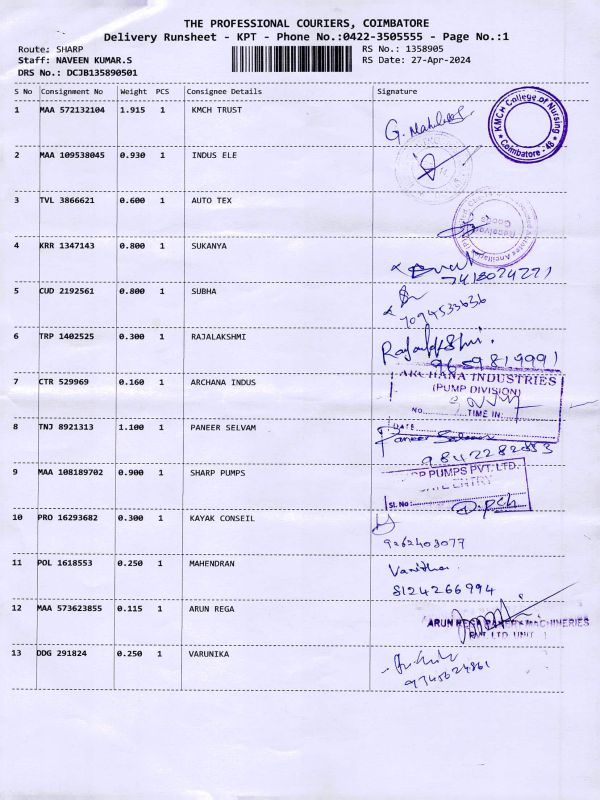 THE PROFESSIONAL COURIERS, COIMBATORE
Delivery Runsheet - KPT - Phone No.:0422-3505555 - Page No.:1
Route: SHARP
RS No.: 1358905
Staff: NAVEEN KUMAR.S
RS Date: 27-Apr-2024
DRS No.: DCJB135890501
S No Consignment No Weight PCS Consignee Details Signature
1 MAA 572132104 1.915 1 KMCH TRUST
KMCH College of Nursing
Coimbatore - 48
2 MAA 109538045 0.930 1 INDUS ELE
3 TVL 3866621 0.600 1 AUTO TEX
4 KRR 1347143 0.800 1 SUKANYA
7418024221
5 CUD 2192561 0.800 1 SUBHA
7094533636
6 TRP 1402525 0.300 1 RAJALAKSHMI
9659819991
7 CTR 529969 0.160 1 ARCHANA INDUS
ARCHANA INDUSTRIES
(PUMP DIVISION)
NO. TIME IN:
DATE
8 TNJ 8921313 1.100 1 PANEER SELVAM Paneer Selvam
9842282853
9 MAA 108189702 0.900 1 SHARP PUMPS
PUMPS PVT. LTD.
GATE ENTRY
SL No:
10 PRO 16293682 0.300 1 KAYAK CONSEIL
9262403077
11 POL 1618553 0.250 1 MAHENDRAN Vanitha
8124266994
12 MAA 573623855 0.115 1 ARUN REGA
ARUN REGA MACHINERIES
PVT LTD UNIT
13 DDG 291824 0.250 1 VARUNIKA
9745624861